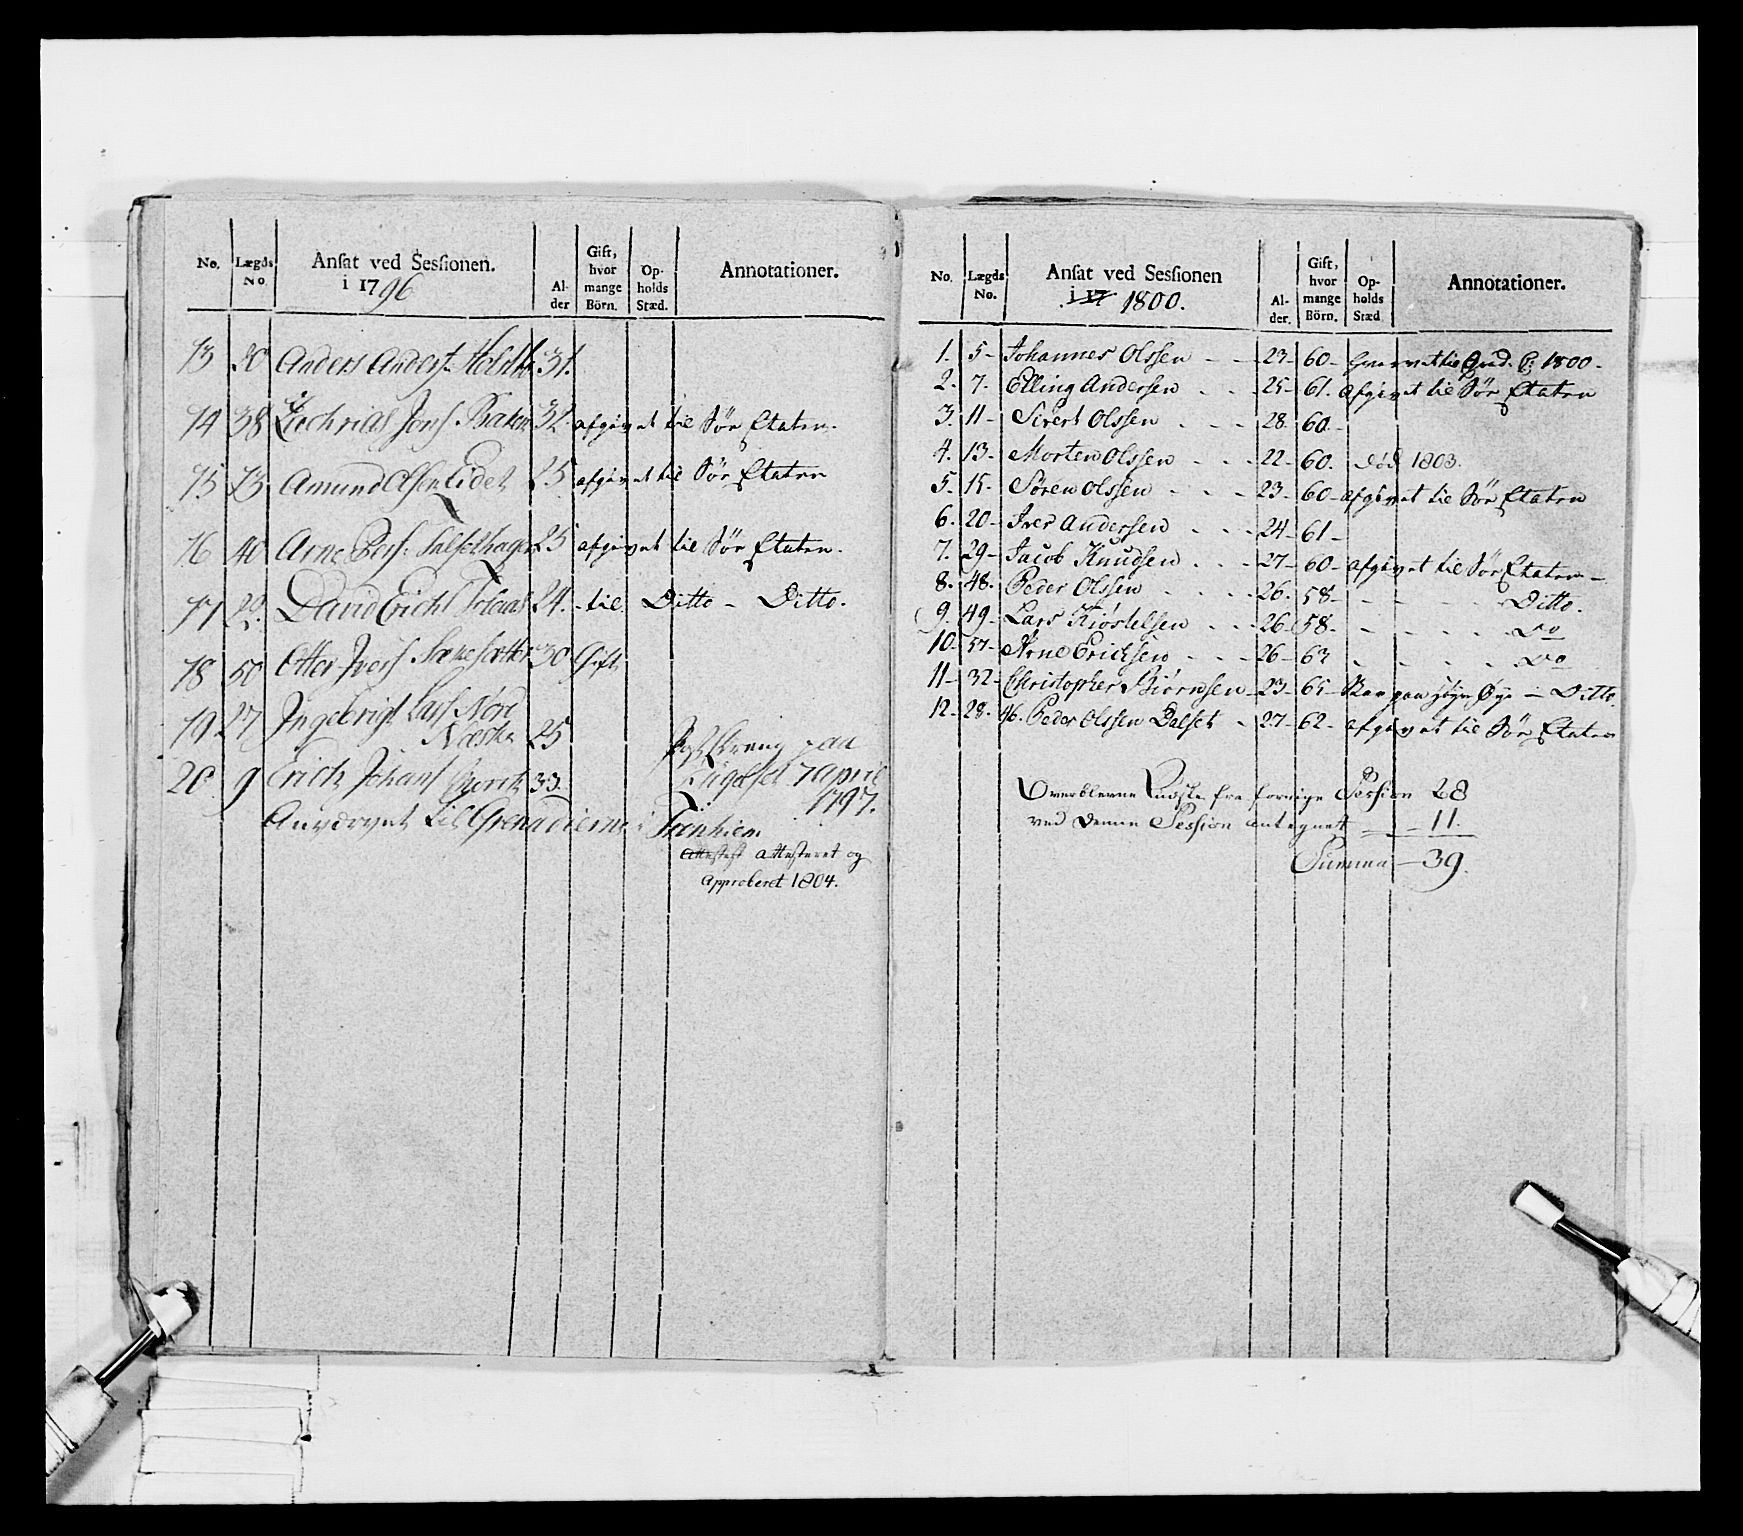 No. Lægds No. Ansat ved Sessionen. i 1796 Al- der Gift, hvor mange Börn. Op- holds Stæd. Annotationer.
13 20 Anders Anders. 31.
14 38 Zachrias Jons. Baken 32 afgivet til Sör Etaten.
15 13 Amund Olsen Eidet 25 afgivet til Sör Etaten
16 40 Arne Pers. 25 afgivet til Sör Etaten.
17 20. David Erichs. 24. - til Ditto - Ditto.
18 50 Otter Ivers. 30 Gift
19 27 Ingebrigt Lars. Nore
Næstu 25
20 9 Erich Johans. 33.
7 April
1797.
til Grenadierne i
attesteret og
Approberet 1804.
No. Lægds No. Ansat ved Sessionen i 17 1800. Al- der. Gift, hvor mange Börn. Op- holds Stæd Annotationer.
1. 5 - Johannes Olssen - - 23 - 60 - 1800.
2. 7. Elling Andersen - - 25 - 61. afgivet til Sör Etaten
3. 11 - Sivert Olssen - - - 28. 60. -
4. 13 - Morten Olssen - - - 22 - 60. död 1803.
5. 15 - Sören Olssen - - - 23 - 60 - afgivet til Sör Etaten
6. 20 - Iver Andersen - - - 24 - 61 -
7. 29 - Jacob Knudsen - - - 27 - 60 - afgivet til Sör Etaten -
8. 48. Peder Olssen - - - 26. 58 - - - - Ditto.
9. 49 - Lars Kiöstelsen - - - 26 - 58. - - - - Do
10. 57 - Arne Ericksen - - - 26 - 63 - - - - Do
11 - 32 - Christopher Biörnsen - 23 - 65 - Øye - Ditto.
12 - 28. 46. Peder Olssen Dalset - 27 - 62 - afgivet til Sör Etaten
Overblevne fra forrige Session 28
ved Denne Session antegnet - - 11.
Summa - 39.